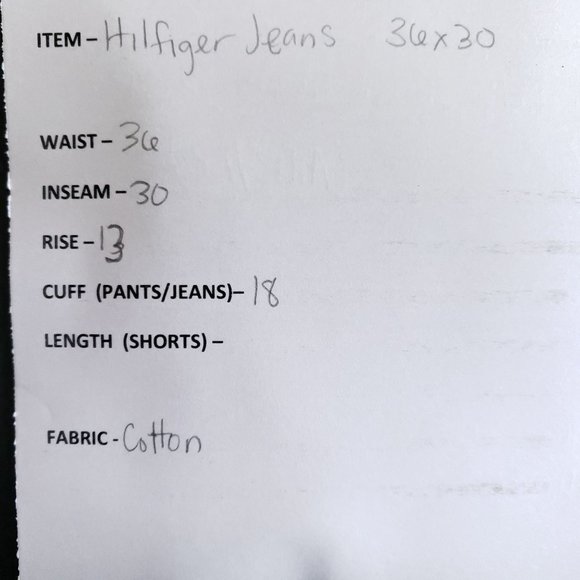 ITEM – Hilfiger Jeans 36x30
WAIST – 36
INSEAM – 30
RISE – 13
CUFF (PANTS/JEANS)– 18
LENGTH (SHORTS) –
FABRIC - Cotton